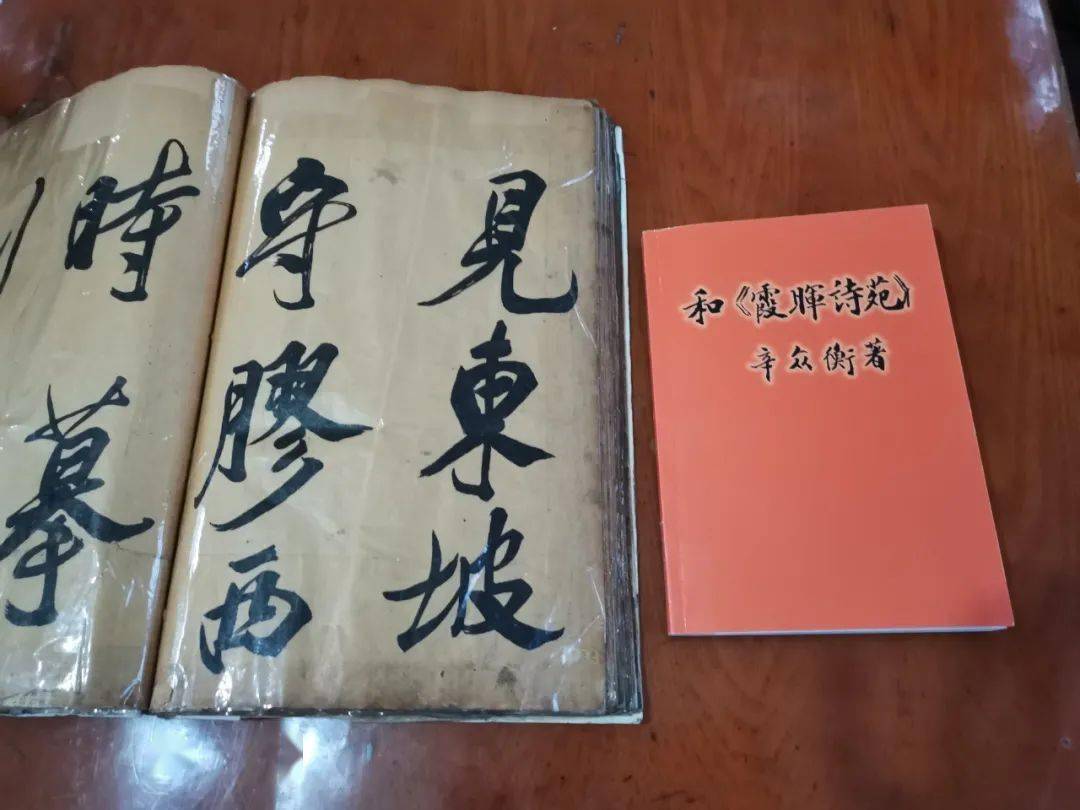 見東坡
守膠西
時摹
和《霞暉詩苑》
辛众衡著